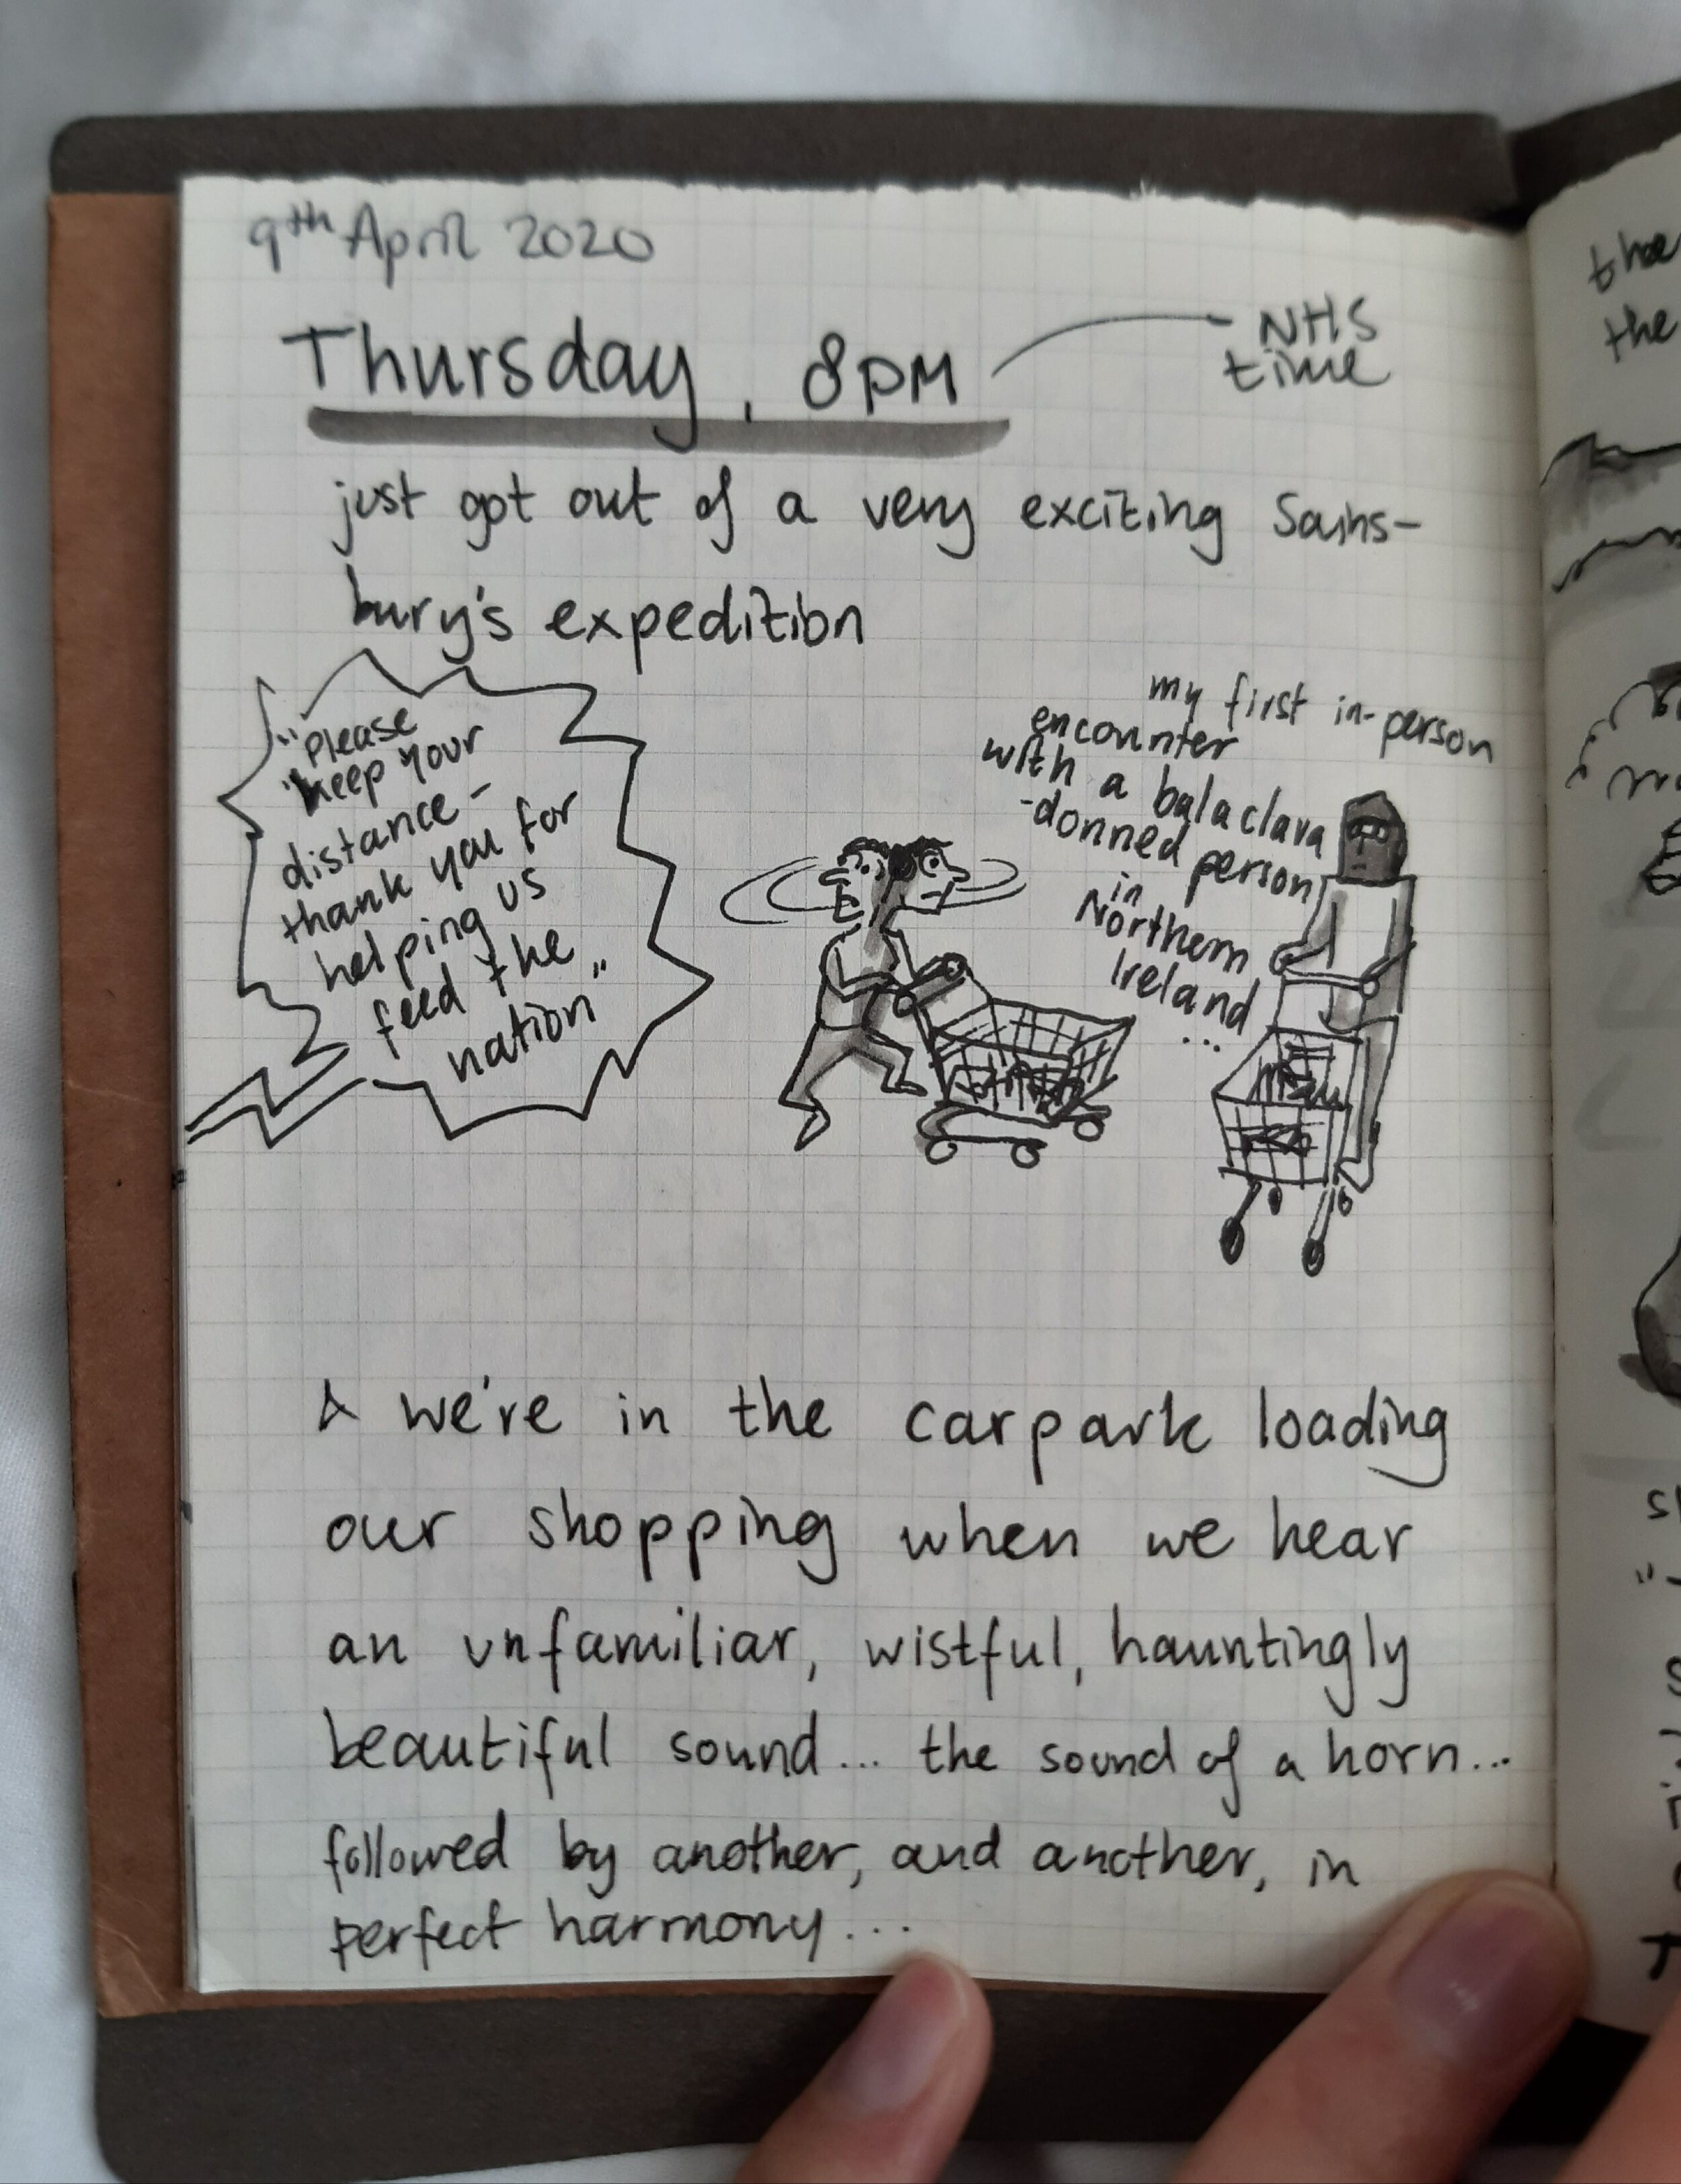 9th April 2020
Thursday, 8PM
NHS
time
just got out of a very exciting Sains-
bury's expedition
"Please
keep your
distance -
thank you for
helping us
feed the
nation"
my first in-person
encounter
with a balaclava
-donned person
in
Northern
Ireland
...
& we're in the carpark loading
our shopping when we hear
an unfamiliar, wistful, hauntingly
beautiful sound... the sound of a horn...
followed by another, and another, in
perfect harmony...
the
the